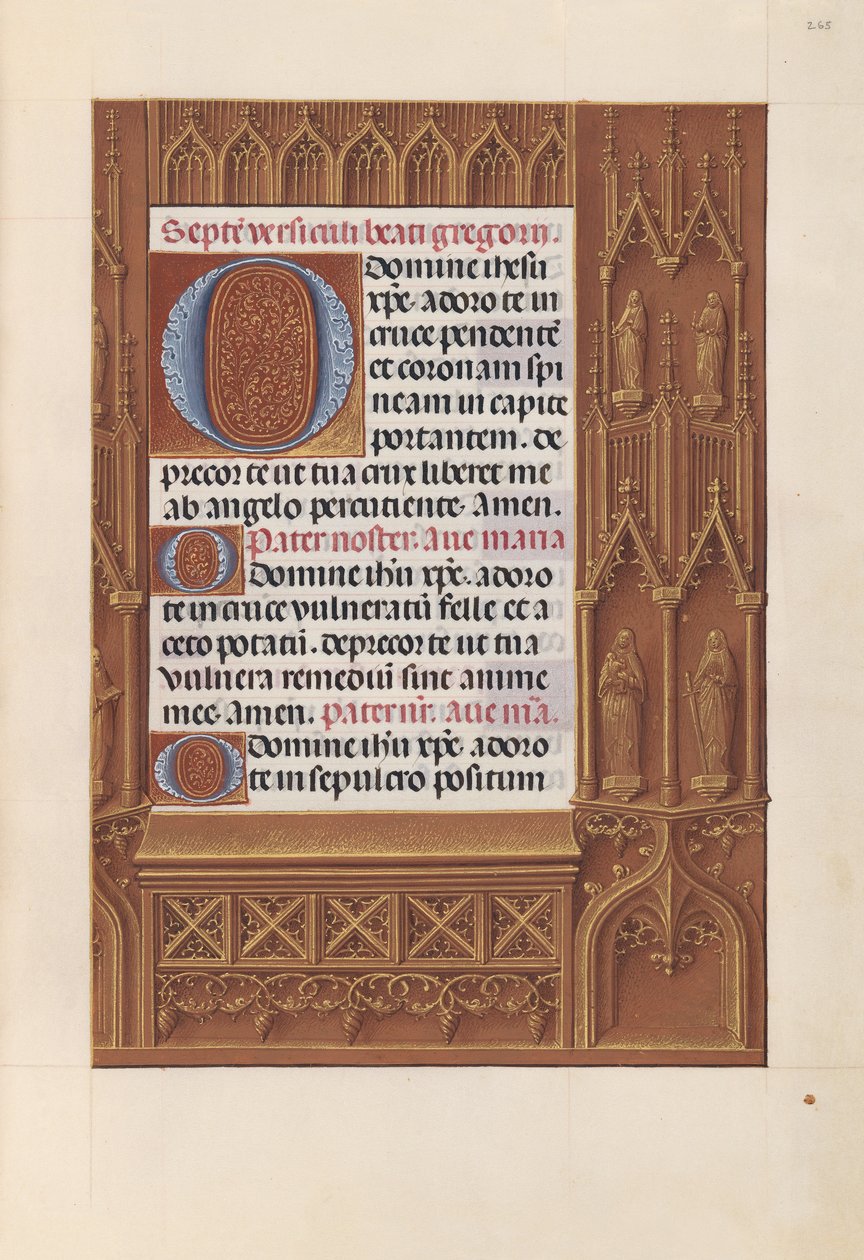 265
Septē versiculi beati gregorij.
O Domine ihesu
xp̄e. adoro te in
cruce pendentē
et coronam spi
neam in capite
portantem. de
precor te ut tua crux liberet me
ab angelo percutiente. Amen.
Pater noster. Aue maria
O Domine ih̄u xp̄e. adoro
te in cruce vulneratū felle et a
ceto potatū. deprecor te ut tua
vulnera remediū sint anime
mee. Amen. Pater nr̄. Aue m̄a.
O Domine ih̄u xp̄e. adoro
te in sepulcro positum